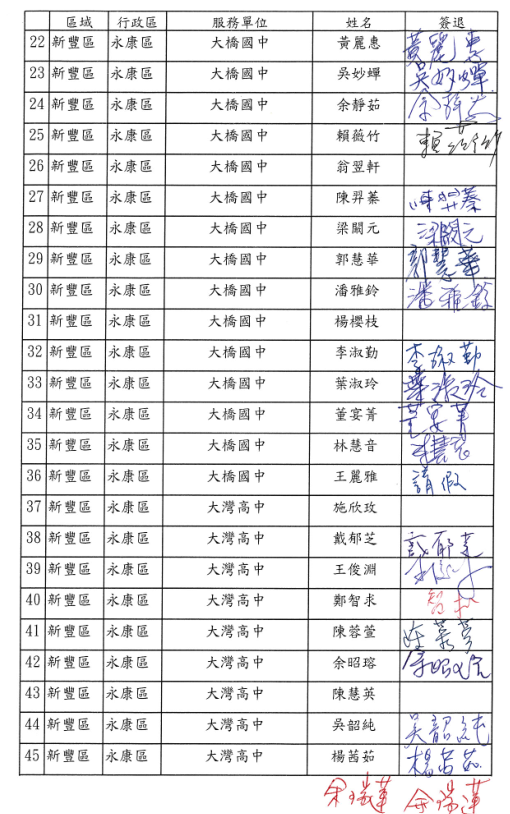 區域 行政區 服務單位 姓名 簽退
22 新豐區 永康區 大橋國中 黃麗惠 黃麗惠
23 新豐區 永康區 大橋國中 吳妙蟬 吳妙蟬
24 新豐區 永康區 大橋國中 余靜茹 余靜茹
25 新豐區 永康區 大橋國中 賴薇竹 賴薇竹
26 新豐區 永康區 大橋國中 翁翌軒
27 新豐區 永康區 大橋國中 陳羿蓁 陳羿蓁
28 新豐區 永康區 大橋國中 梁闗元 梁闗元
29 新豐區 永康區 大橋國中 郭慧華 郭慧華
30 新豐區 永康區 大橋國中 潘雅鈴 潘雅鈴
31 新豐區 永康區 大橋國中 楊櫻枝
32 新豐區 永康區 大橋國中 李淑勤 李淑勤
33 新豐區 永康區 大橋國中 葉淑玲 葉淑玲
34 新豐區 永康區 大橋國中 董宴菁 董宴菁
35 新豐區 永康區 大橋國中 林慧音 林慧音
36 新豐區 永康區 大橋國中 王麗雅 請假
37 新豐區 永康區 大灣高中 施欣玫
38 新豐區 永康區 大灣高中 戴郁芝 戴郁芝
39 新豐區 永康區 大灣高中 王俊淵
40 新豐區 永康區 大灣高中 鄭智求 智求
41 新豐區 永康區 大灣高中 陳蓉萱 陳蓉萱
42 新豐區 永康區 大灣高中 余昭瑢 余昭瑢
43 新豐區 永康區 大灣高中 陳慧英
44 新豐區 永康區 大灣高中 吳韶純 吳韶純
45 新豐區 永康區 大灣高中 楊茜茹 楊茜茹
余瑞蓮 余瑞蓮